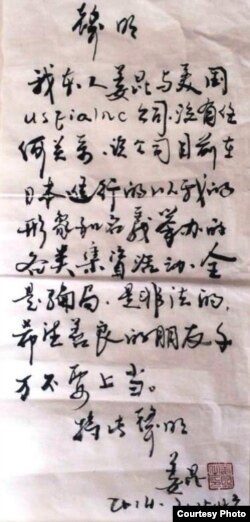 聲明
我本人姜昆与美国
usfia inc 公司. 没有任
何关系. 该公司目前在
日本進行的以我的
形象和名義举办的
各类集資活动. 全
是骗局. 是非法的.
希望善良的朋友千
万不要上当。
特此聲明
姜昆
2014.
Courtesy Photo